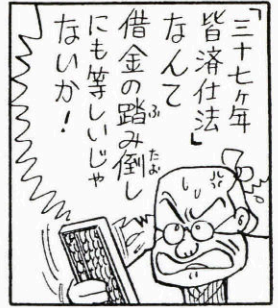 「三十七ヶ年
皆済仕法」
なんて
借金の踏み倒し
ふ
たお
にも等しいじゃ
ないか！